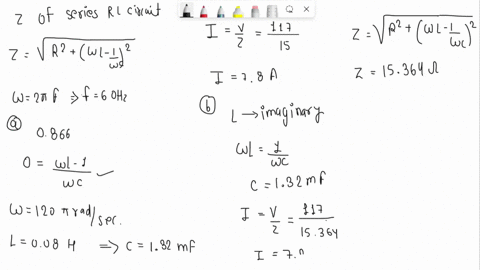 Z of series RL circuit
Z = √(R² + (ωL - 1/ωC)²)
ω = 2πf ⇒ f = 60Hz
(a)
0.866
0 = ωL - 1/ωC ✓
ω = 120 π rad/sec.
L = 0.08 H ⇒ C = 1.32 mf
I = V/Z = 117/15
I = 7.8 A
(b)
L → imaginary
ωL = 1/ωC
C = 1.32 mf
I = V/Z = 117/15.364
I = 7.
Z = √(R² + (ωL - 1/ωC)²)
Z = 15.364 Ω